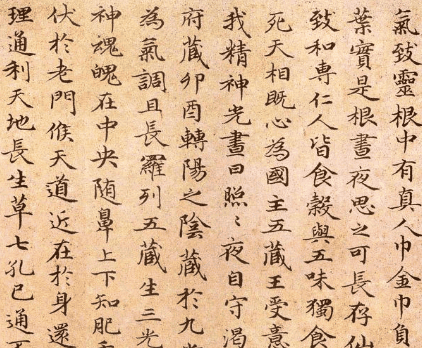 氣致靈根中有真人巾金巾負
葉實是根晝夜思之可長存仙
致和專仁人皆食穀與五味獨食
死天相既心為國主五藏王受意
我精神光晝日照〻夜自守渴
府藏卯酉轉陽之陰藏於九
為氣調且長羅列五藏生三光
神魂魄在中央随鼻上下知肥
伏於老門候天道近在於身還
理通利天地長生草七孔已通